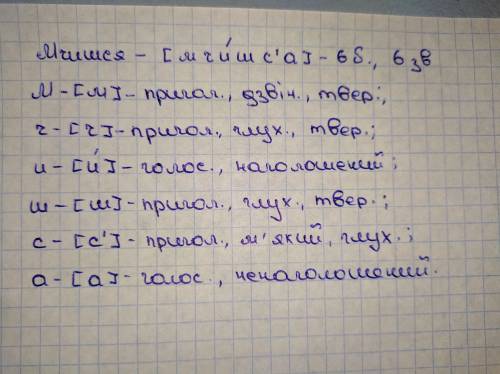 Мчишся - [м ч и́ ш с' а] - 6 б., 6 зв
М - [м] - пригол., дзвін., твер.;
ч - [ч] - пригол., глух., твер.;
и - [и́] - голос., наголошений;
ш - [ш] - пригол., глух., твер.;
с - [с'] - пригол., м'який, глух.;
а - [а] - голос., ненаголошений.